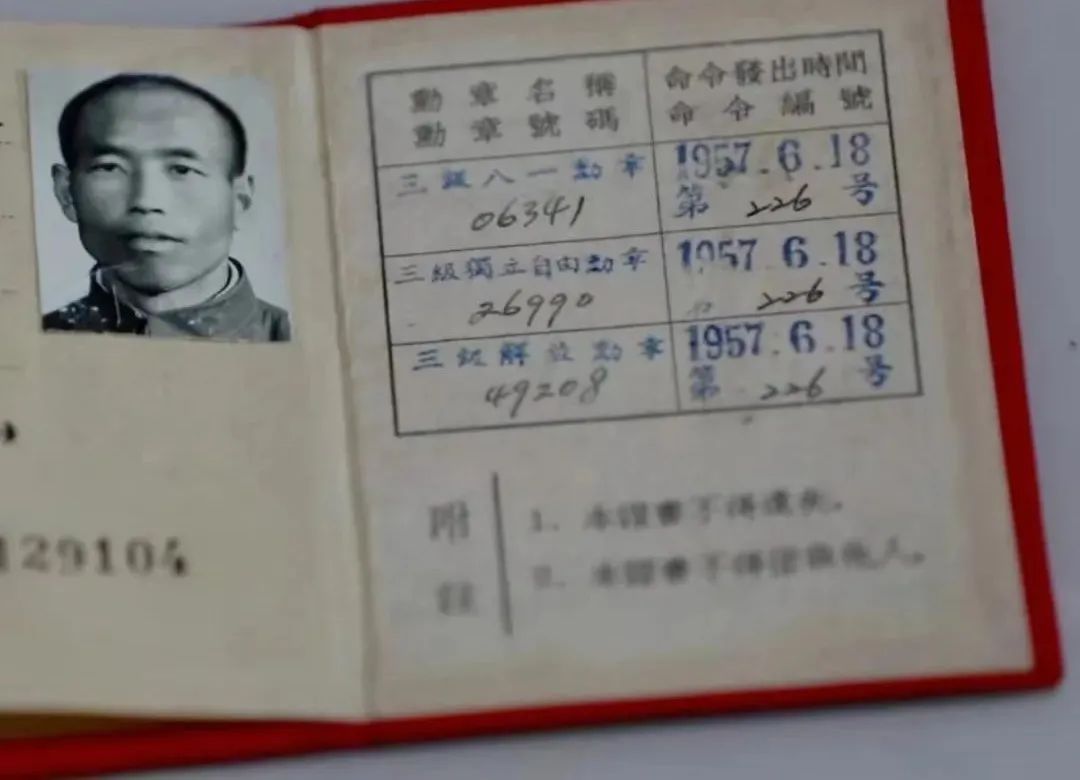 勳章名稱
勳章號碼
命令發出時間
命令編號
三級八一勳章
06341
1957.6.18
第226号
三級獨立自由勳章
26990
1957.6.18
226号
三級解放勳章
49208
1957.6.18
第226号
129104
附註
1. 本證書不得遺失。
2. 本證書不得借與他人。